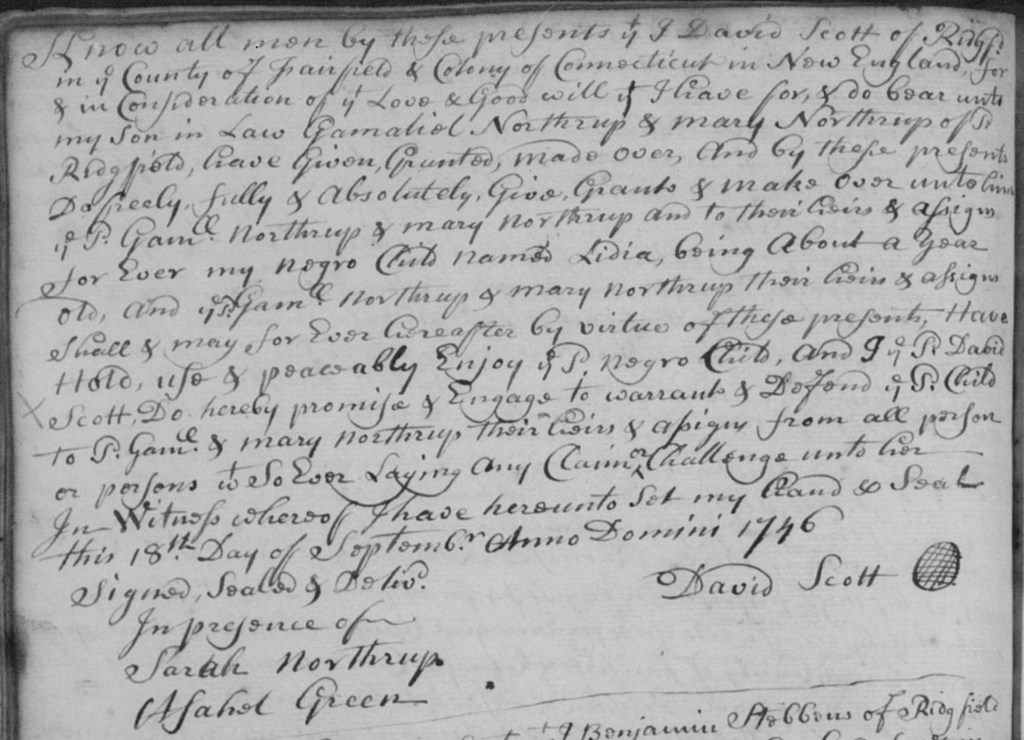 Know all men by these presents yt I David Scott of Ridgfd.
in ye County of Fairfield & Colony of Connecticut in New England, for
& in Consideration of yt Love & Good will yt I have for, & do bear unto
my Son in Law Gamaliel Northrup & mary Northrup of sd.
Ridgfield, have Given, Granted, made over, And by these presents
Do freely, fully & Absolutely, Give, Grant & make over unto him
ye sd. Gamll. Northrup & mary Northrup and to their heirs & assigns
for Ever my negro Child named Lidia, being About a year
old, And ye sd. Gamll. Northrup & mary Northrup their heirs & assigns
Shall & may for Ever hereafter by virtue of these presents, Have
Hold, use & peaceably Enjoy ye sd. negro Child, And I ye sd. David
Scott, Do hereby promise & Engage to warrant & Defend ye sd. Child
to sd. Gamll. & mary Northrup their heirs & assigns from all person
or persons wt So Ever Laying Any Claim or Challenge unto her
In Witness whereof I have hereunto Set my hand & Seal
this 18th. Day of Septembr. Anno Domini 1746
Signed, Sealed & Delivd.
David Scott
In presence of
Sarah Northrup
Asahel Green
I Benjamin Stebbens of Ridgfield